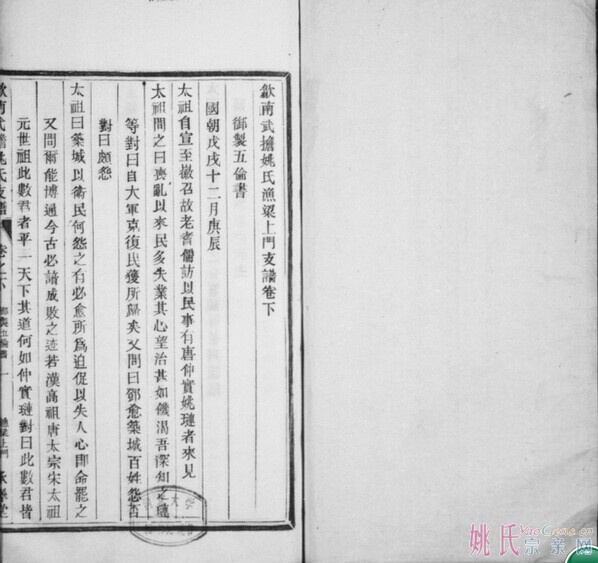 歙南武擔姚氏漁梁上門支譜卷下
御製五倫書
國朝戊戌十二月庚辰
太祖自宣至徽召故老耆儒訪以民事有唐仲實姚璉者來見
太祖問之曰喪亂以來民多失業其心望治甚如饑渴吾深知之璉
等對曰自大軍克復民獲所歸矣又問曰鄧愈築城百姓怨否
對曰頗怨
太祖曰築城以衛民何怨之有必愈所爲迫促以失人心即命罷之
又問爾能博通今古必諳成敗之迹若漢高祖唐太宗宋太祖
元世祖此數君者平一天下其道何如仲實璉對曰此數君皆
歙南武擔姚氏支譜 卷之下 御製五倫書 一
姚氏宗亲网